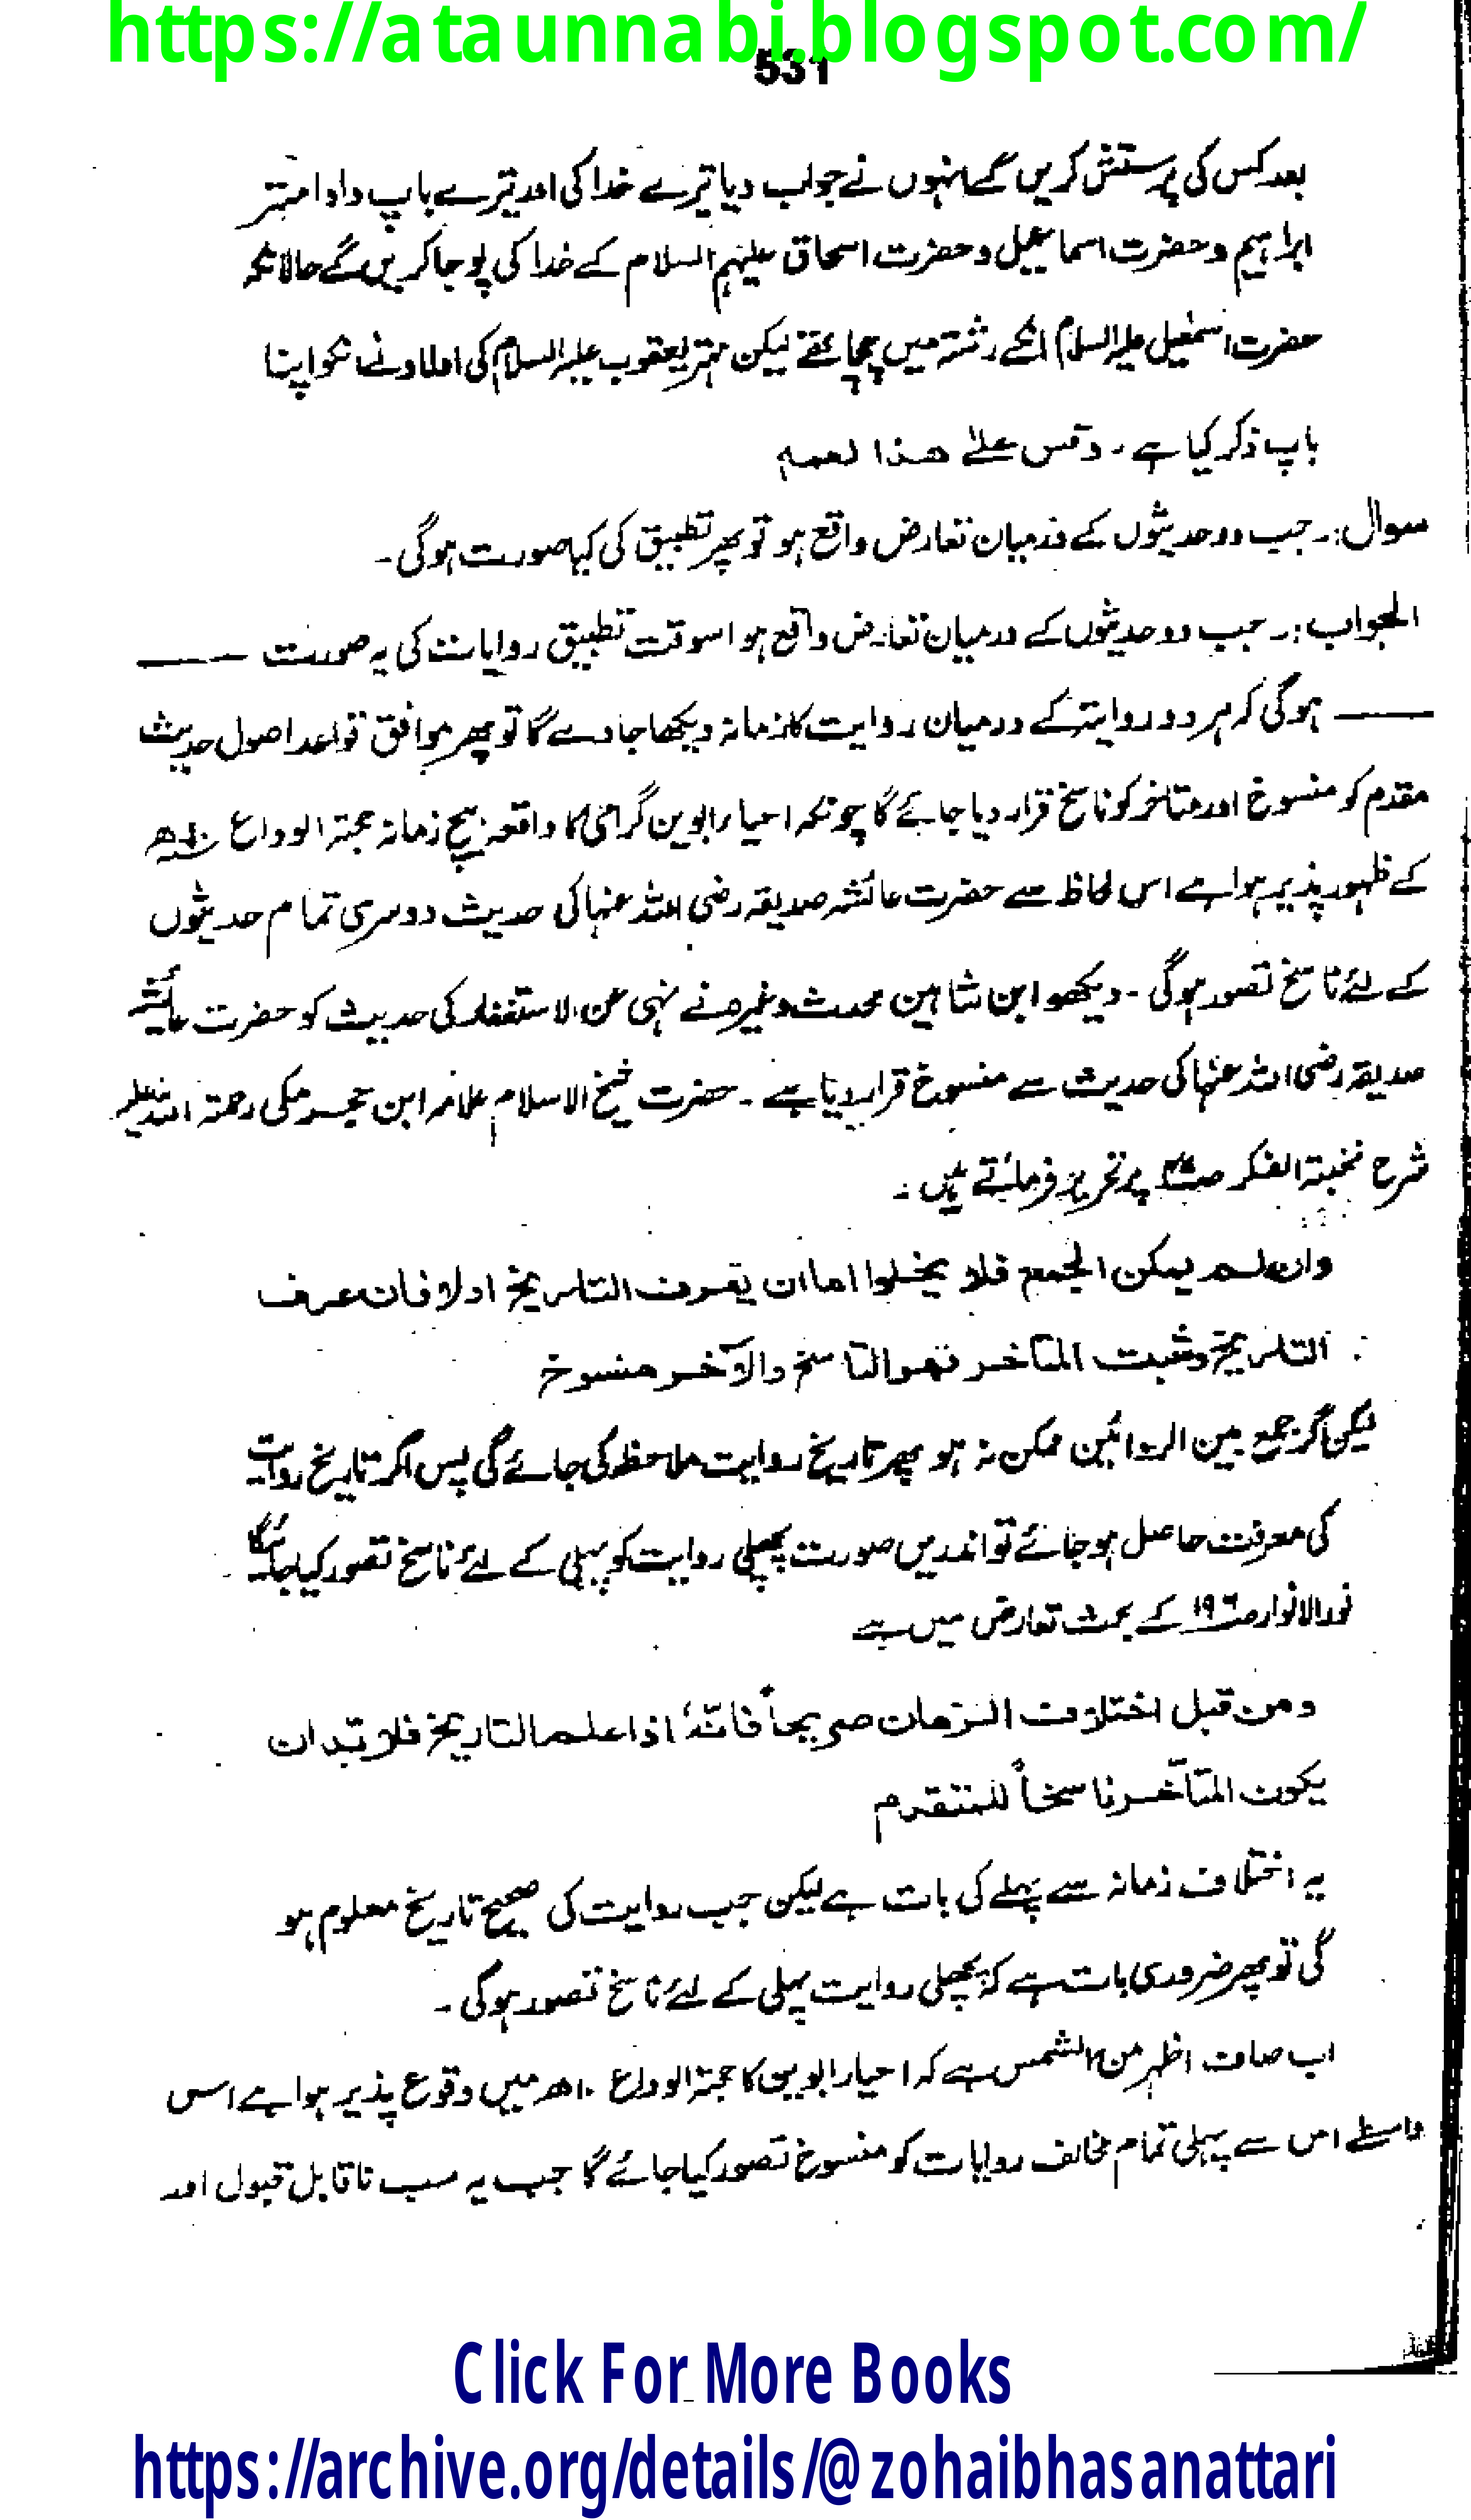 https://ataunnabi.blogspot.com/
531
بعد کس کی پرستش کریں گے انہوں نے جواب دیا تیرے خدا کی اور تیرے باپ دادا مہتر
ابراہیم و حضرت اسماعیل و حضرت اسحاق علیہم السلام کے خدا کی پوجا کریں گے حالانکہ
حضرت اسمٰعیل علیہ السلام انکے رشتہ میں چچا تھے لیکن مہتر یعقوب علیہ السلام کی اولاد نے انکو اپنا
باپ ذکر کیا ہے۔ وقس علےٰ ھذا لعمہ
سوال:۔ جب دو حدیثوں کے درمیان تعارض واقع ہو تو پھر تطبیق کی کیا صورت ہوگی۔
الجواب:۔ جب دو حدیثوں کے درمیان تعارض واقع ہو اسوقت تطبیق روایات کی یہ صورت ——
—— ہوگی کہ ہر دو روایتہ کے درمیان روایت کا زمانہ دیکھا جاوے گا تو پھر موافق قواعد اصول حدیث
مقدم کو منسوخ اور متاخر کو ناسخ قرار دیا جائے گا چونکہ احیا ابوین گرامی کا واقعہ بیچ زمانہ حجۃ الوداع ۱۰ھ
کے ظہور پذیر ہوا ہے اس لحاظ سے حضرت عائشہ صدیقہ رضی اللہ عنہا کی حدیث دوسری تمام حدیثوں
کے لئے ناسخ تصور ہوگی۔ دیکھو ابن شاہین محدث وغیرہ نے نہی عن الاستغفار کی حدیث کو حضرت عائشہ
صدیقہ رضی اللہ عنہا کی حدیث سے منسوخ قرار دیا ہے۔ حضرت شیخ الاسلام علامہ ابن حجر مکی رحمۃ اللہ علیہ
شرح نخبۃ الفکر پر تحریر فرماتے ہیں۔
وان لم یمکن الجمع فلا یخلوا اما ان یعرف التاریخ اولا فان عرف
التاریخ وثبت المتأخر فھو الناسخ والآخر منسوخ
لیکن اگر جمع بین الروائین ممکن نہ ہو پھر تاریخ روایت ملاحظہ کی جائے گی پس اگر تاریخ روایت
کی معرفت حاصل ہوجائے تو اندریں صورت پچھلی روایت کو پہلی کے لئے ناسخ تصور کیا جائیگا۔
نورالانوار ص۱۹۶ کے بحث تعارض میں ہے
ومن قبل اختلاف الزمان صریحاً فانہٗ اذا علم التاریخ فلا بد ان
یکون المتأخر ناسخاً للمتقدم
یہ اختلاف زمانہ سے پہلے کی بات ہے لیکن جب روایت کی صحیح تاریخ معلوم ہو
گی تو پھر ضروری بات ہے کہ پچھلی روایت پہلی کے لئے ناسخ تصور ہوگی۔
اب صاف اظہر من الشمس ہے کہ احیار ابوین کا حجۃ الوداع ۱۰ھ میں وقوع پذیر ہوا ہے اس
واسطے اس سے پہلی تمام مخالف روایات کو منسوخ تصور کیا جائے گا جب یہ سب ناقابل قبول اور
Click For More Books
https://archive.org/details/@zohaibhasanattari